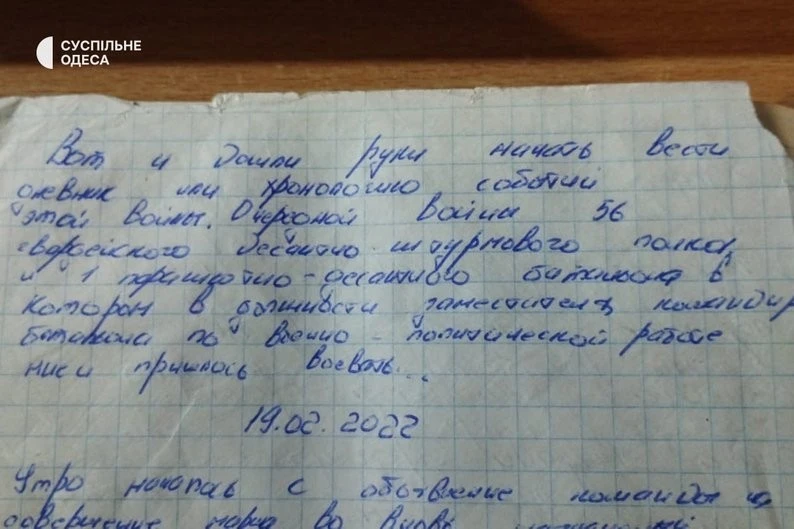 СУСПІЛЬНЕ
ОДЕСА
Вот и дошли руки начать вести
дневник или хронологию событий
этой войны. Очередной войны 56
десантно-штурмового полка
и 1 парашютно-десантного батальона в
котором в должности заместителя командир
батальона по военно-политической работе
пришлось воевать...
19.02.2022
Утро началась с команды на
совершение марша во